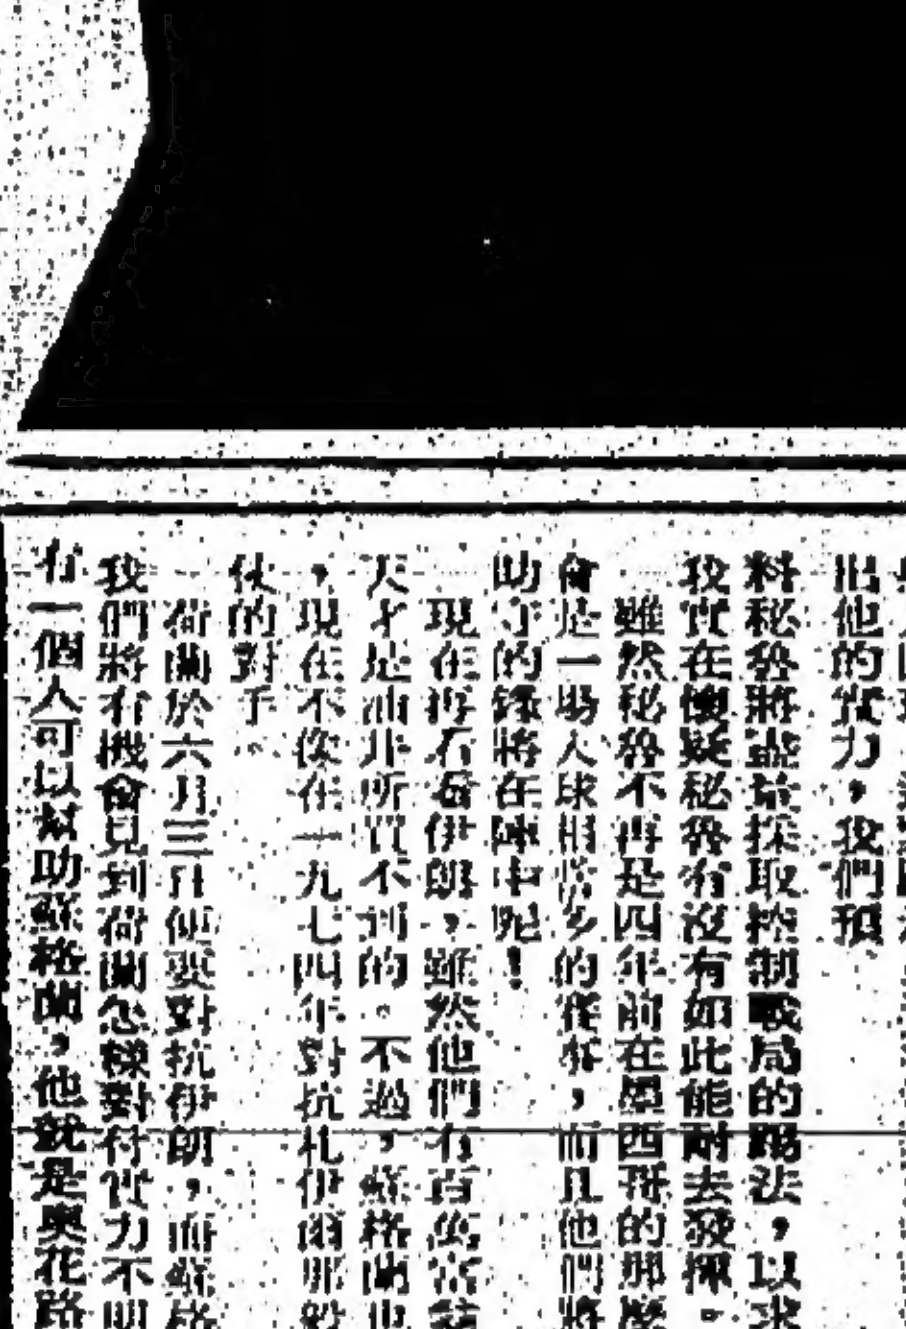 出他的實力，我們預
料秘魯將盡量採取控制戰局的踢法，以求
我實在懷疑秘魯有沒有如此能耐去發揮。
雖然秘魯不再是四年前在墨西哥的那麼
會是一場入球相當多的賽事，而且他們將
助守的鋒將在陣中呢！
現在再看看伊朗，雖然他們有百萬富
天才是油井所買不到的。不過，蘇格蘭也
，現在不像在一九七四年對抗扎伊爾那般
伙的對手。
荷蘭於六月三日便要對抗伊朗，而蘇格
我們將有機會見到荷蘭怎樣對付實力不明
有一個人可以幫助蘇格蘭，他就是奧花路